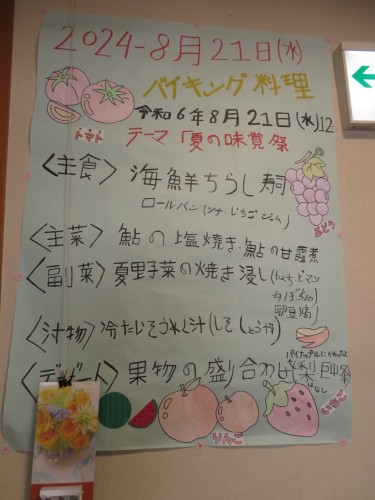 2024-8月21日(水)
バイキング料理
令和6年8月21日(水)12
トマト
テーマ「夏の味覚祭
<主食> 海鮮ちらし寿司
ロールパン(ツナ・いちごジャム)
ぶどう
<主菜> 鮎の塩焼き・鮎の甘露煮
<副菜> 夏野菜の焼き浸し
<汁物> 冷たいそうめん汁(しそ、しょうが)
<デザート> 果物の盛り合わせ
りんご
いちご